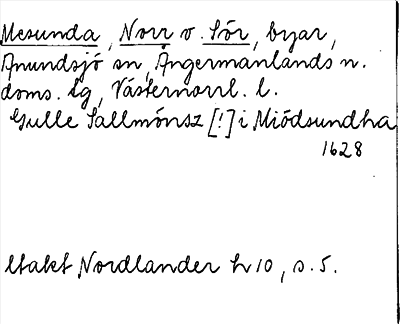 Mesunda, Norr o. Sör, byar,
Anundsjö sn, Ångermanlands n.
doms. tg, Västernorrl. l.
Gulle Sallmónsz [!] i Miödsundha
1628
Utakt Nordlander h 10, s. 5.